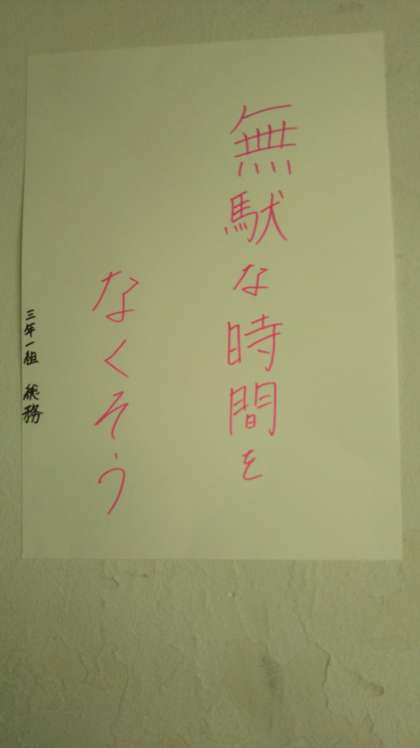 無駄な時間を
なくそう
三年一組 総務